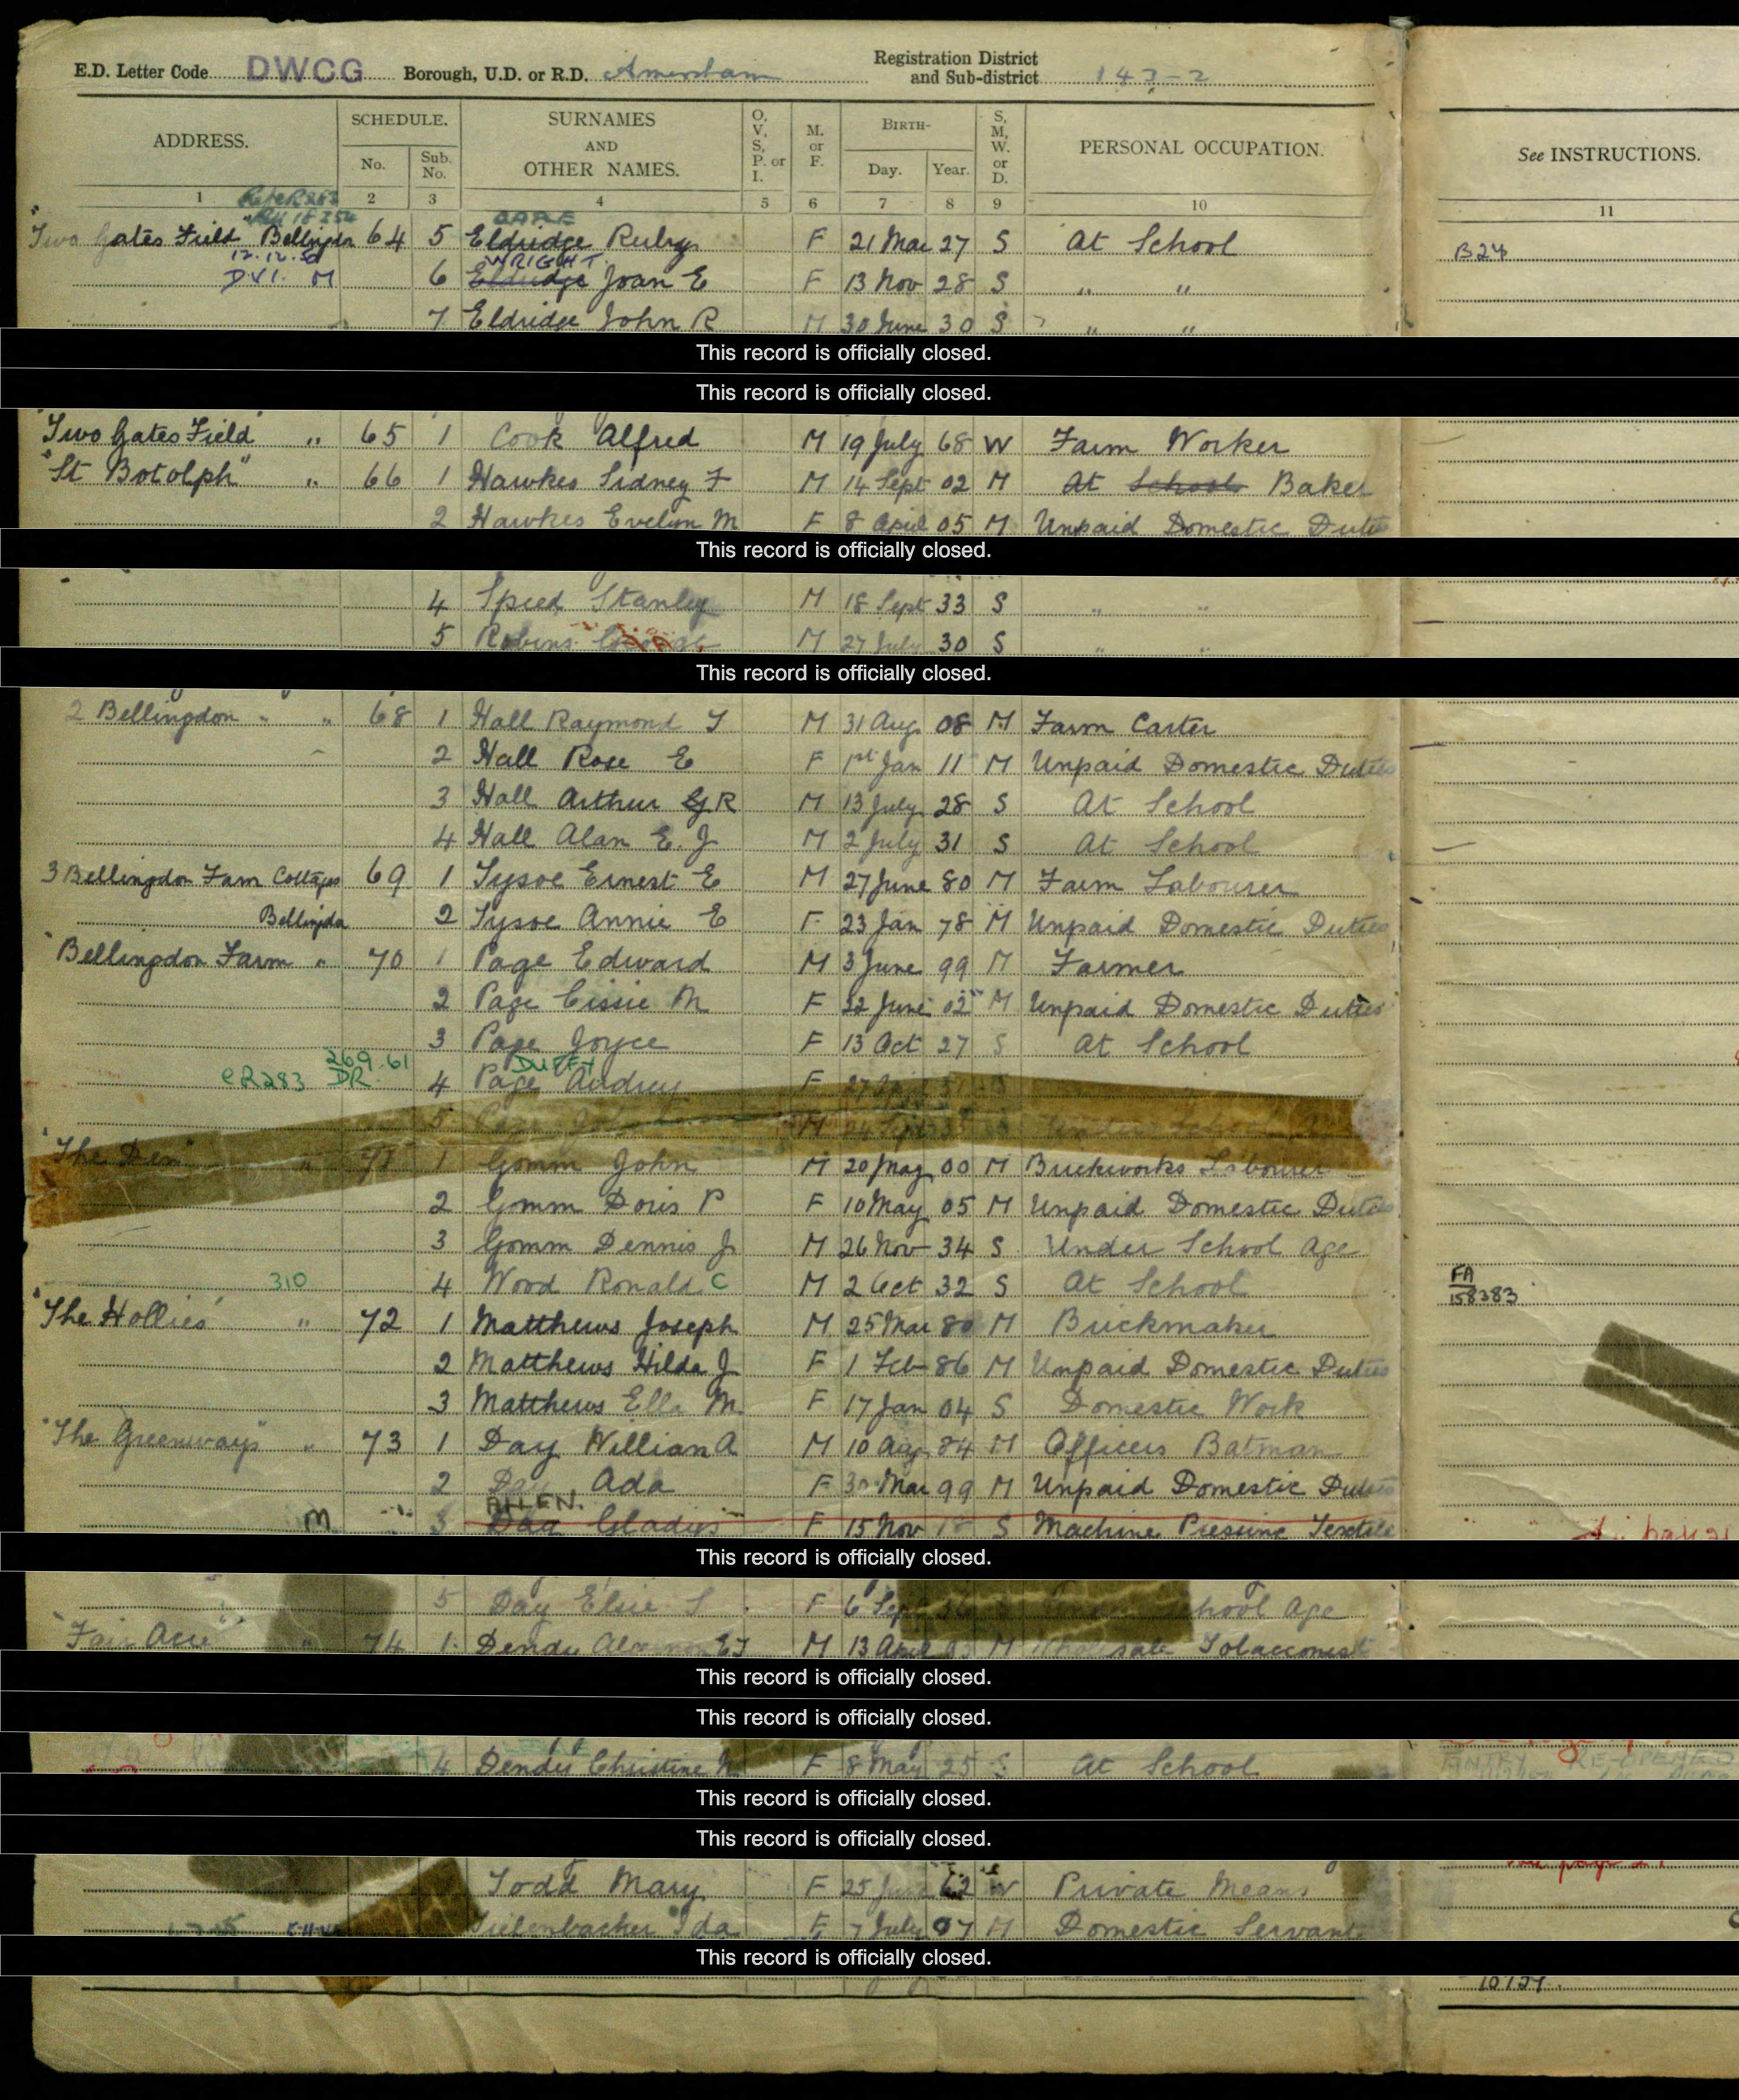 E.D. Letter Code DWCG Borough, U.D. or R.D. Amersham Registration District and Sub-district 143-2
ADDRESS. SCHEDULE. No. Sub. No. SURNAMES AND OTHER NAMES. O, V, S, P. or I. M. or F. BIRTH- Day. Year. S, M, W. or D. PERSONAL OCCUPATION. See INSTRUCTIONS.
1 2 3 4 5 6 7 8 9 10 11
"Two Gates Field" Bellingdon 64 5 Eldridge Ruby F 21 Mar 27 S At School B24
12.12.50 WRIGHT.
D.V.I. M 6 Eldridge Joan E F 13 Nov 28 S " "
7 Eldridge John R M 30 June 30 S " "
This record is officially closed.
This record is officially closed.
"Two Gates Field" " 65 1 Cook Alfred M 19 July 68 W Farm Worker
"St Botolph" " 66 1 Hawkes Sidney F M 14 Sept 02 M At School Baker
2 Hawkes Evelyn M F 8 April 05 M Unpaid Domestic Duties
This record is officially closed.
4 Speed Stanley M 18 Sept 33 S " "
5 Robins George M 27 July 30 S " "
This record is officially closed.
2 Bellingdon " " 68 1 Hall Raymond T M 31 Aug 08 M Farm Carter
2 Hall Rose E F 1st Jan 11 M Unpaid Domestic Duties
3 Hall Arthur G R M 13 July 28 S At School
4 Hall Alan E. J M 2 July 31 S At School
3 Bellingdon Farm Cottages 69 1 Tysoe Ernest E M 27 June 80 M Farm Labourer
Bellingdon 2 Tysoe Annie E F 23 Jan 78 M Unpaid Domestic Duties
"Bellingdon Farm " 70 1 Page Edward M 3 June 99 M Farmer
2 Page Cissie M F 22 June 02 M Unpaid Domestic Duties
3 Page Joyce F 13 Oct 27 S At School
CR283 26.9.61 DR. DUFFY
4 Page Audrey F 27
5 M 24 Sept
"The Den" " 71 1 Gomm John M 20 May 00 M Brickworks Labourer
2 Gomm Doris P F 10 May 05 M Unpaid Domestic Duties
3 Gomm Dennis J M 26 Nov 34 S Under School Age
310 4 Wood Ronald C M 2 Oct 32 S At School FA 158383
"The Hollies" " 72 1 Matthews Joseph M 25 Mar 80 M Brickmaker
2 Matthews Hilda J F 1 Feb 86 M Unpaid Domestic Duties
3 Matthews Ella M. F 17 Jan 04 S Domestic Work
"The Greenways" " 73 1 Day William A M 10 Aug 84 M Officers Batman
2 Day Ada F 30 Mar 99 M Unpaid Domestic Duties
ALLEN.
M 3 Day Gladys F 15 Nov 18 S Machine Pressing Textile
This record is officially closed.
5 Day Elsie S F 6 Sep School Age
"Fair Acre" " 74 1 Dendy E J M 13 April 93 M Wholesale Tobacconist
This record is officially closed.
This record is officially closed.
4 Dendy Christine F 8 May 25 S At School ENTRY RE-OPENED
This record is officially closed.
This record is officially closed.
Todd Mary F 25 62 W Private Means
Ida F 7 July 07 M Domestic Servant
This record is officially closed.